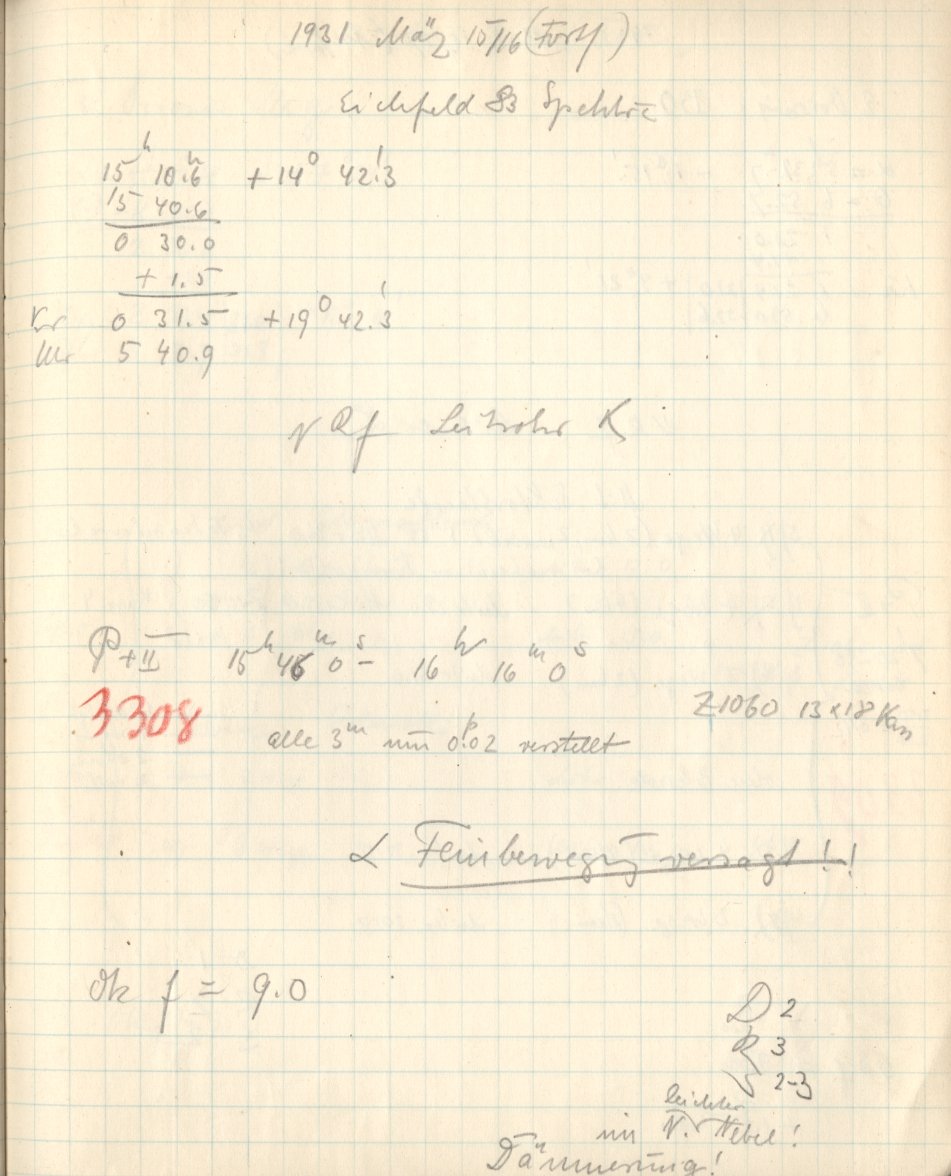 1931 März 15/16 (Forts)
Eichfeld 83 Spektre
15ʰ 10.6ᵐ +14° 42.3'
15 40.6
0 30.0
+ 1.5
0 31.5 +19° 42.3'
5 40.9
Rf Leitrohr K
P+II 15ʰ 46ᵐ 0ˢ – 16ʰ 16ᵐ 0ˢ
3308 Z1060 13x18 Kass
alle 3ᵐ um 0.02 verstellt
α Feinbewegung versagt !!
Ok f = 9.0
D 2
R 3
2-3
leichter
im N. Nebel!
Dämmerung!